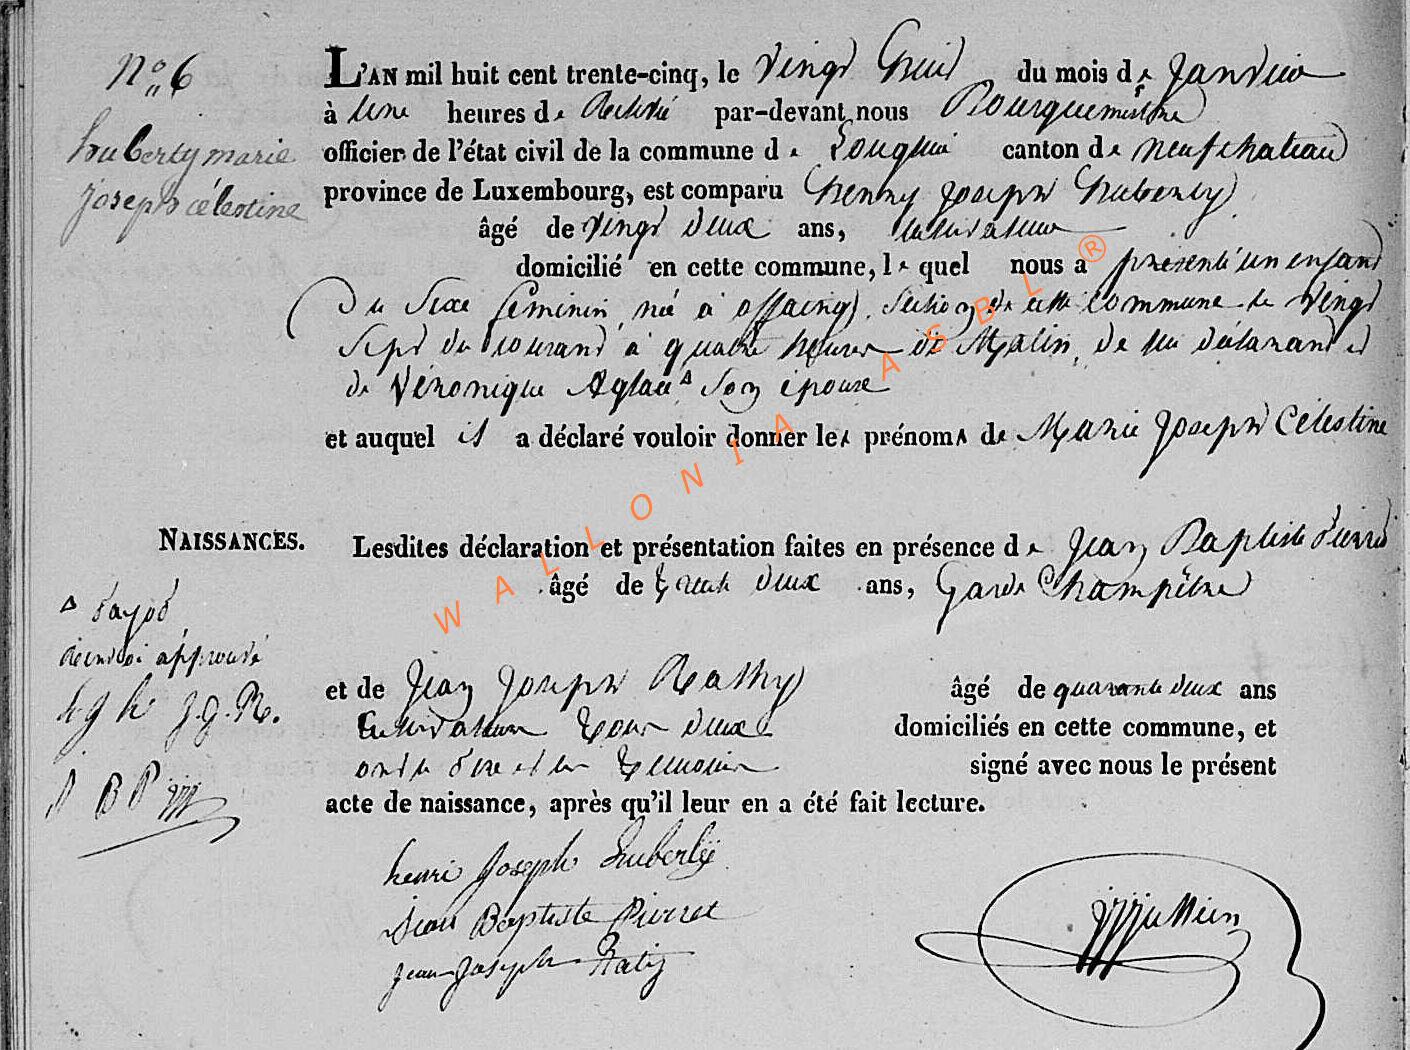 N° 6
huberty marie
joseph célestine
L'AN mil huit cent trente-cinq, le vingt huit du mois de janvier
à une heures de Relevé par-devant nous Bourguemestre
officier de l'état civil de la commune de canton de neufchateau
province de Luxembourg, est comparu henry joseph huberty
âgé de vingt deux ans, cultivateur
domicilié en cette commune, le quel nous a présenté un enfant
du sexe feminin, née à offaing section de cette commune le vingt
sept du courant à quatre heures de Matin, de lui déclarant et
de Véronique Aglaé son épouse
et auquel il a déclaré vouloir donner les prénoms de Marie Joseph Célestine
NAISSANCES.
Lesdites déclaration et présentation faites en présence de Jean Baptiste Pierret
âgé de trente deux ans, Garde Champêtre
renvoi approuvé
h j h j.j.R.
J B P
et de Jean Joseph Rathy âgé de quarante deux ans
Cultivateur tous deux domiciliés en cette commune, et
ont le père et les temoins signé avec nous le présent
acte de naissance, après qu'il leur en a été fait lecture.
henri Joseph huberty
Jean Baptiste Pierret
jean joseph Ratiy
WALLONIA ASBL ®